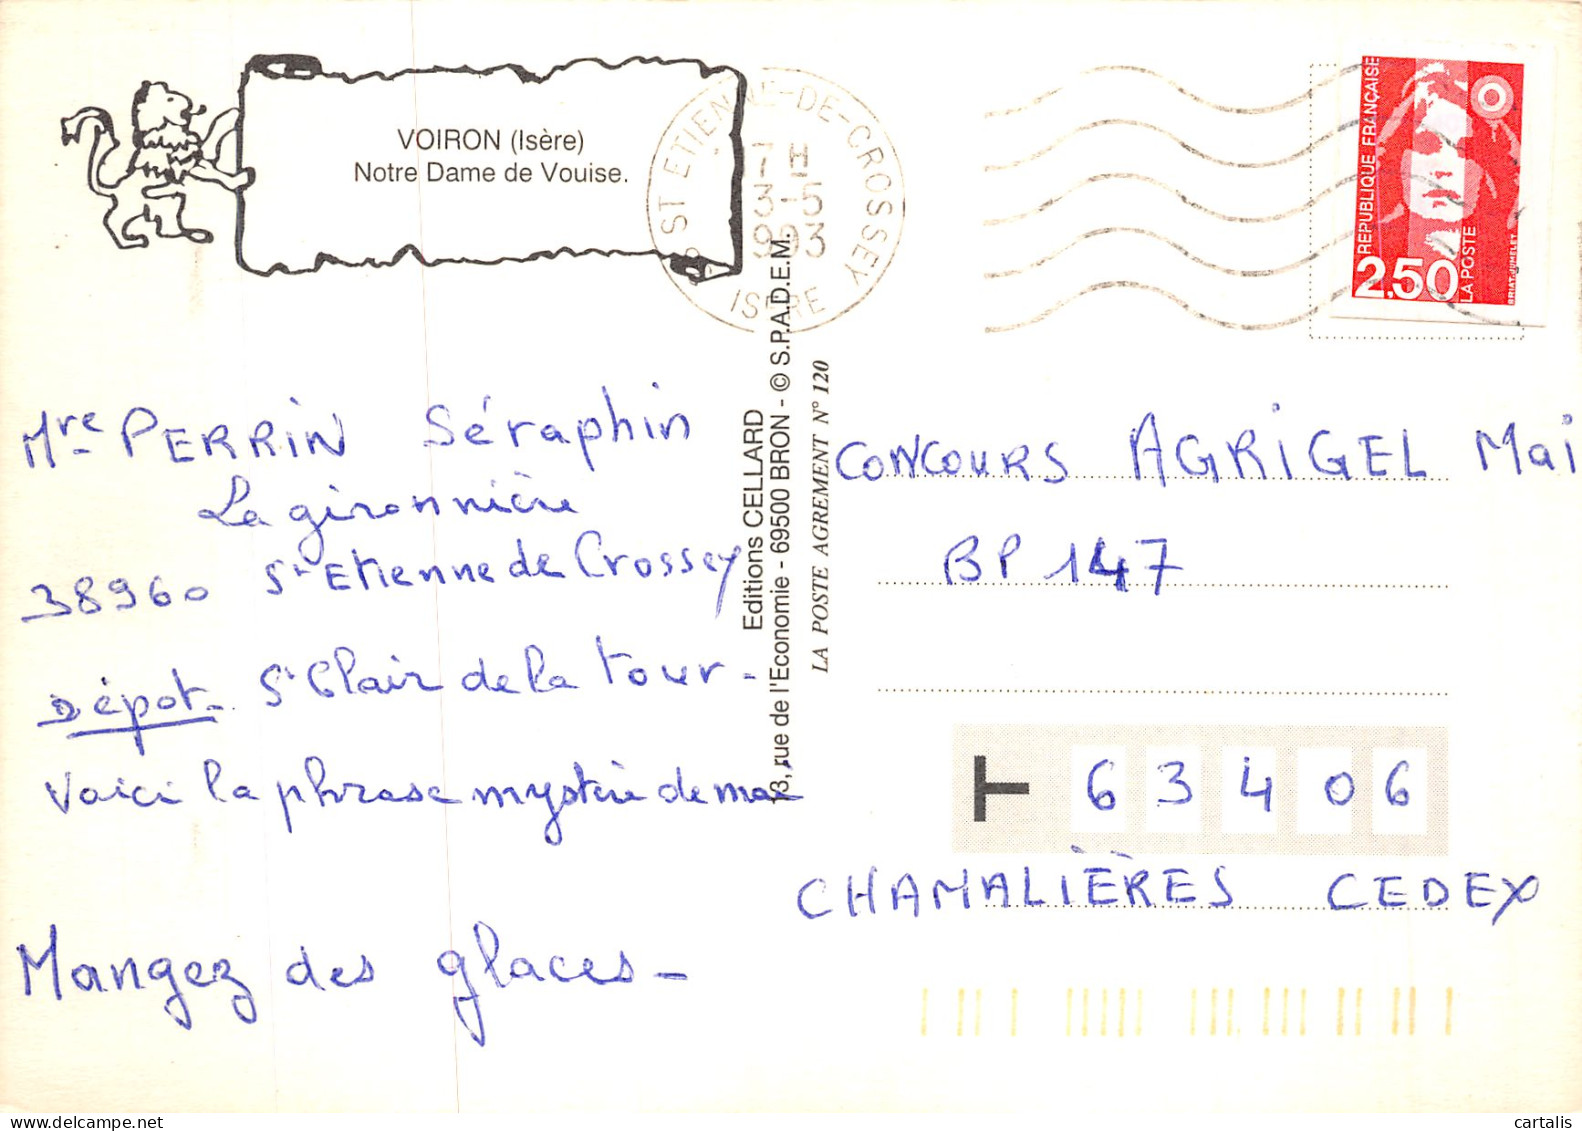 VOIRON (Isère)
Notre Dame de Vouise.
ST ETIENNE-DE-CROSSEY
7H
3-5
1993
ISERE
REPUBLIQUE FRANÇAISE
2,50
LA POSTE
BRIAT-JUMELET
Mre PERRIN Séraphin
La gironnière
38960 St Etienne de Crossey
Dépot - St Clair de la tour -
Voici la phrase mystère de mai
Mangez des glaces -
Editions CELLARD
13, rue de l'Economie - 69500 BRON - © S.P.A.D.E.M.
LA POSTE AGREMENT N° 120
CONCOURS AGRIGEL Mai
BP 147
63406
CHAMALIÈRES CEDEX
cartalis